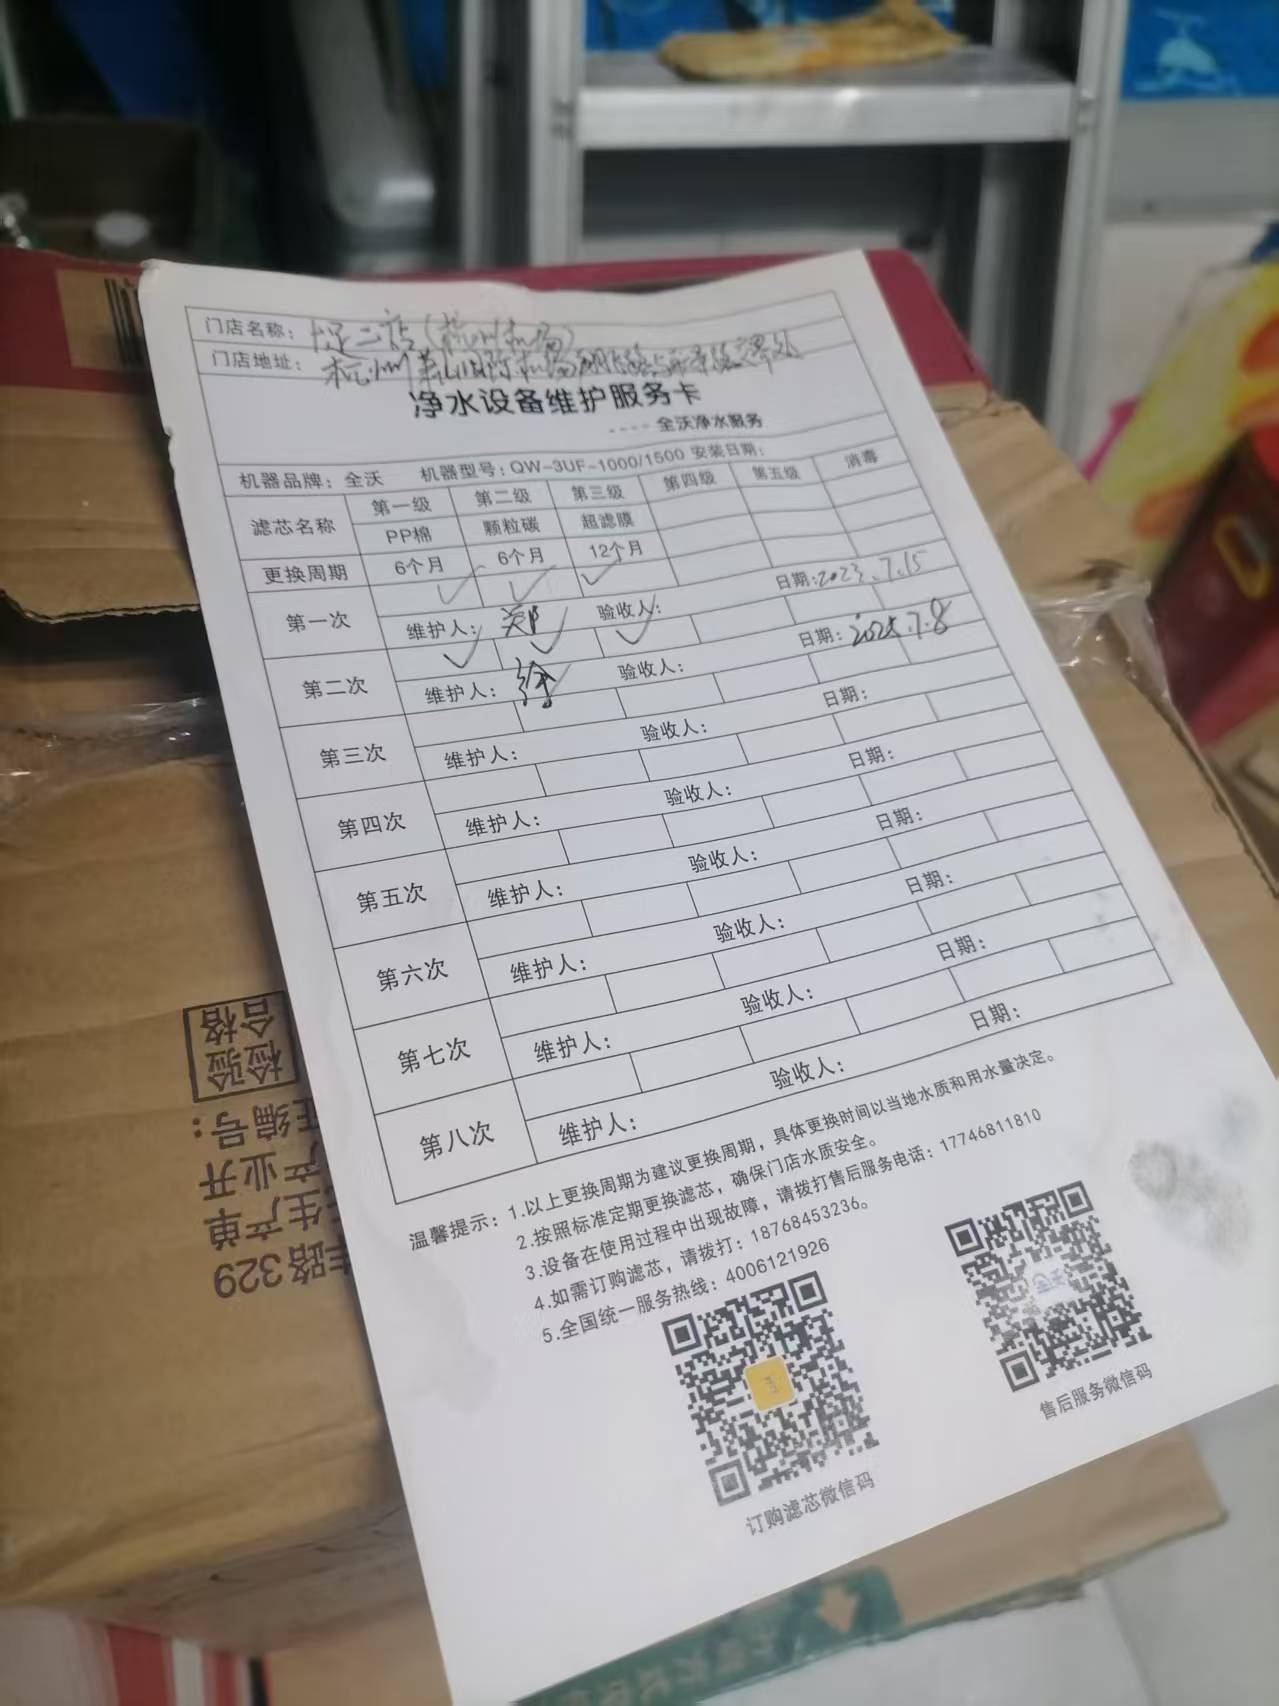 门店名称：足二店(杭州机场)
门店地址：杭州萧山国际机场
净水设备维护服务卡
---- 全沃净水服务
机器品牌：全沃 机器型号：QW-3UF-1000/1500 安装日期：
滤芯名称 第一级 第二级 第三级 第四级 第五级 消毒
PP棉 颗粒碳 超滤膜
更换周期 6个月 6个月 12个月
第一次 ✓ ✓ ✓
维护人：郑 验收人： 日期：2023.7.15
第二次 ✓ ✓ ✓
维护人：徐 验收人： 日期：2025.7.8
第三次
维护人： 验收人： 日期：
第四次
维护人： 验收人： 日期：
第五次
维护人： 验收人： 日期：
第六次
维护人： 验收人： 日期：
第七次
维护人： 验收人： 日期：
第八次
维护人： 验收人： 日期：
温馨提示：1.以上更换周期为建议更换周期，具体更换时间以当地水质和用水量决定。
2.按照标准定期更换滤芯，确保门店水质安全。
3.设备在使用过程中出现故障，请拨打售后服务电话：17746811810
4.如需订购滤芯，请拨打：18768453236。
5.全国统一服务热线：4006121926
订购滤芯微信码
售后服务微信码
路329
生产单
产业开
编号：
检验
合格